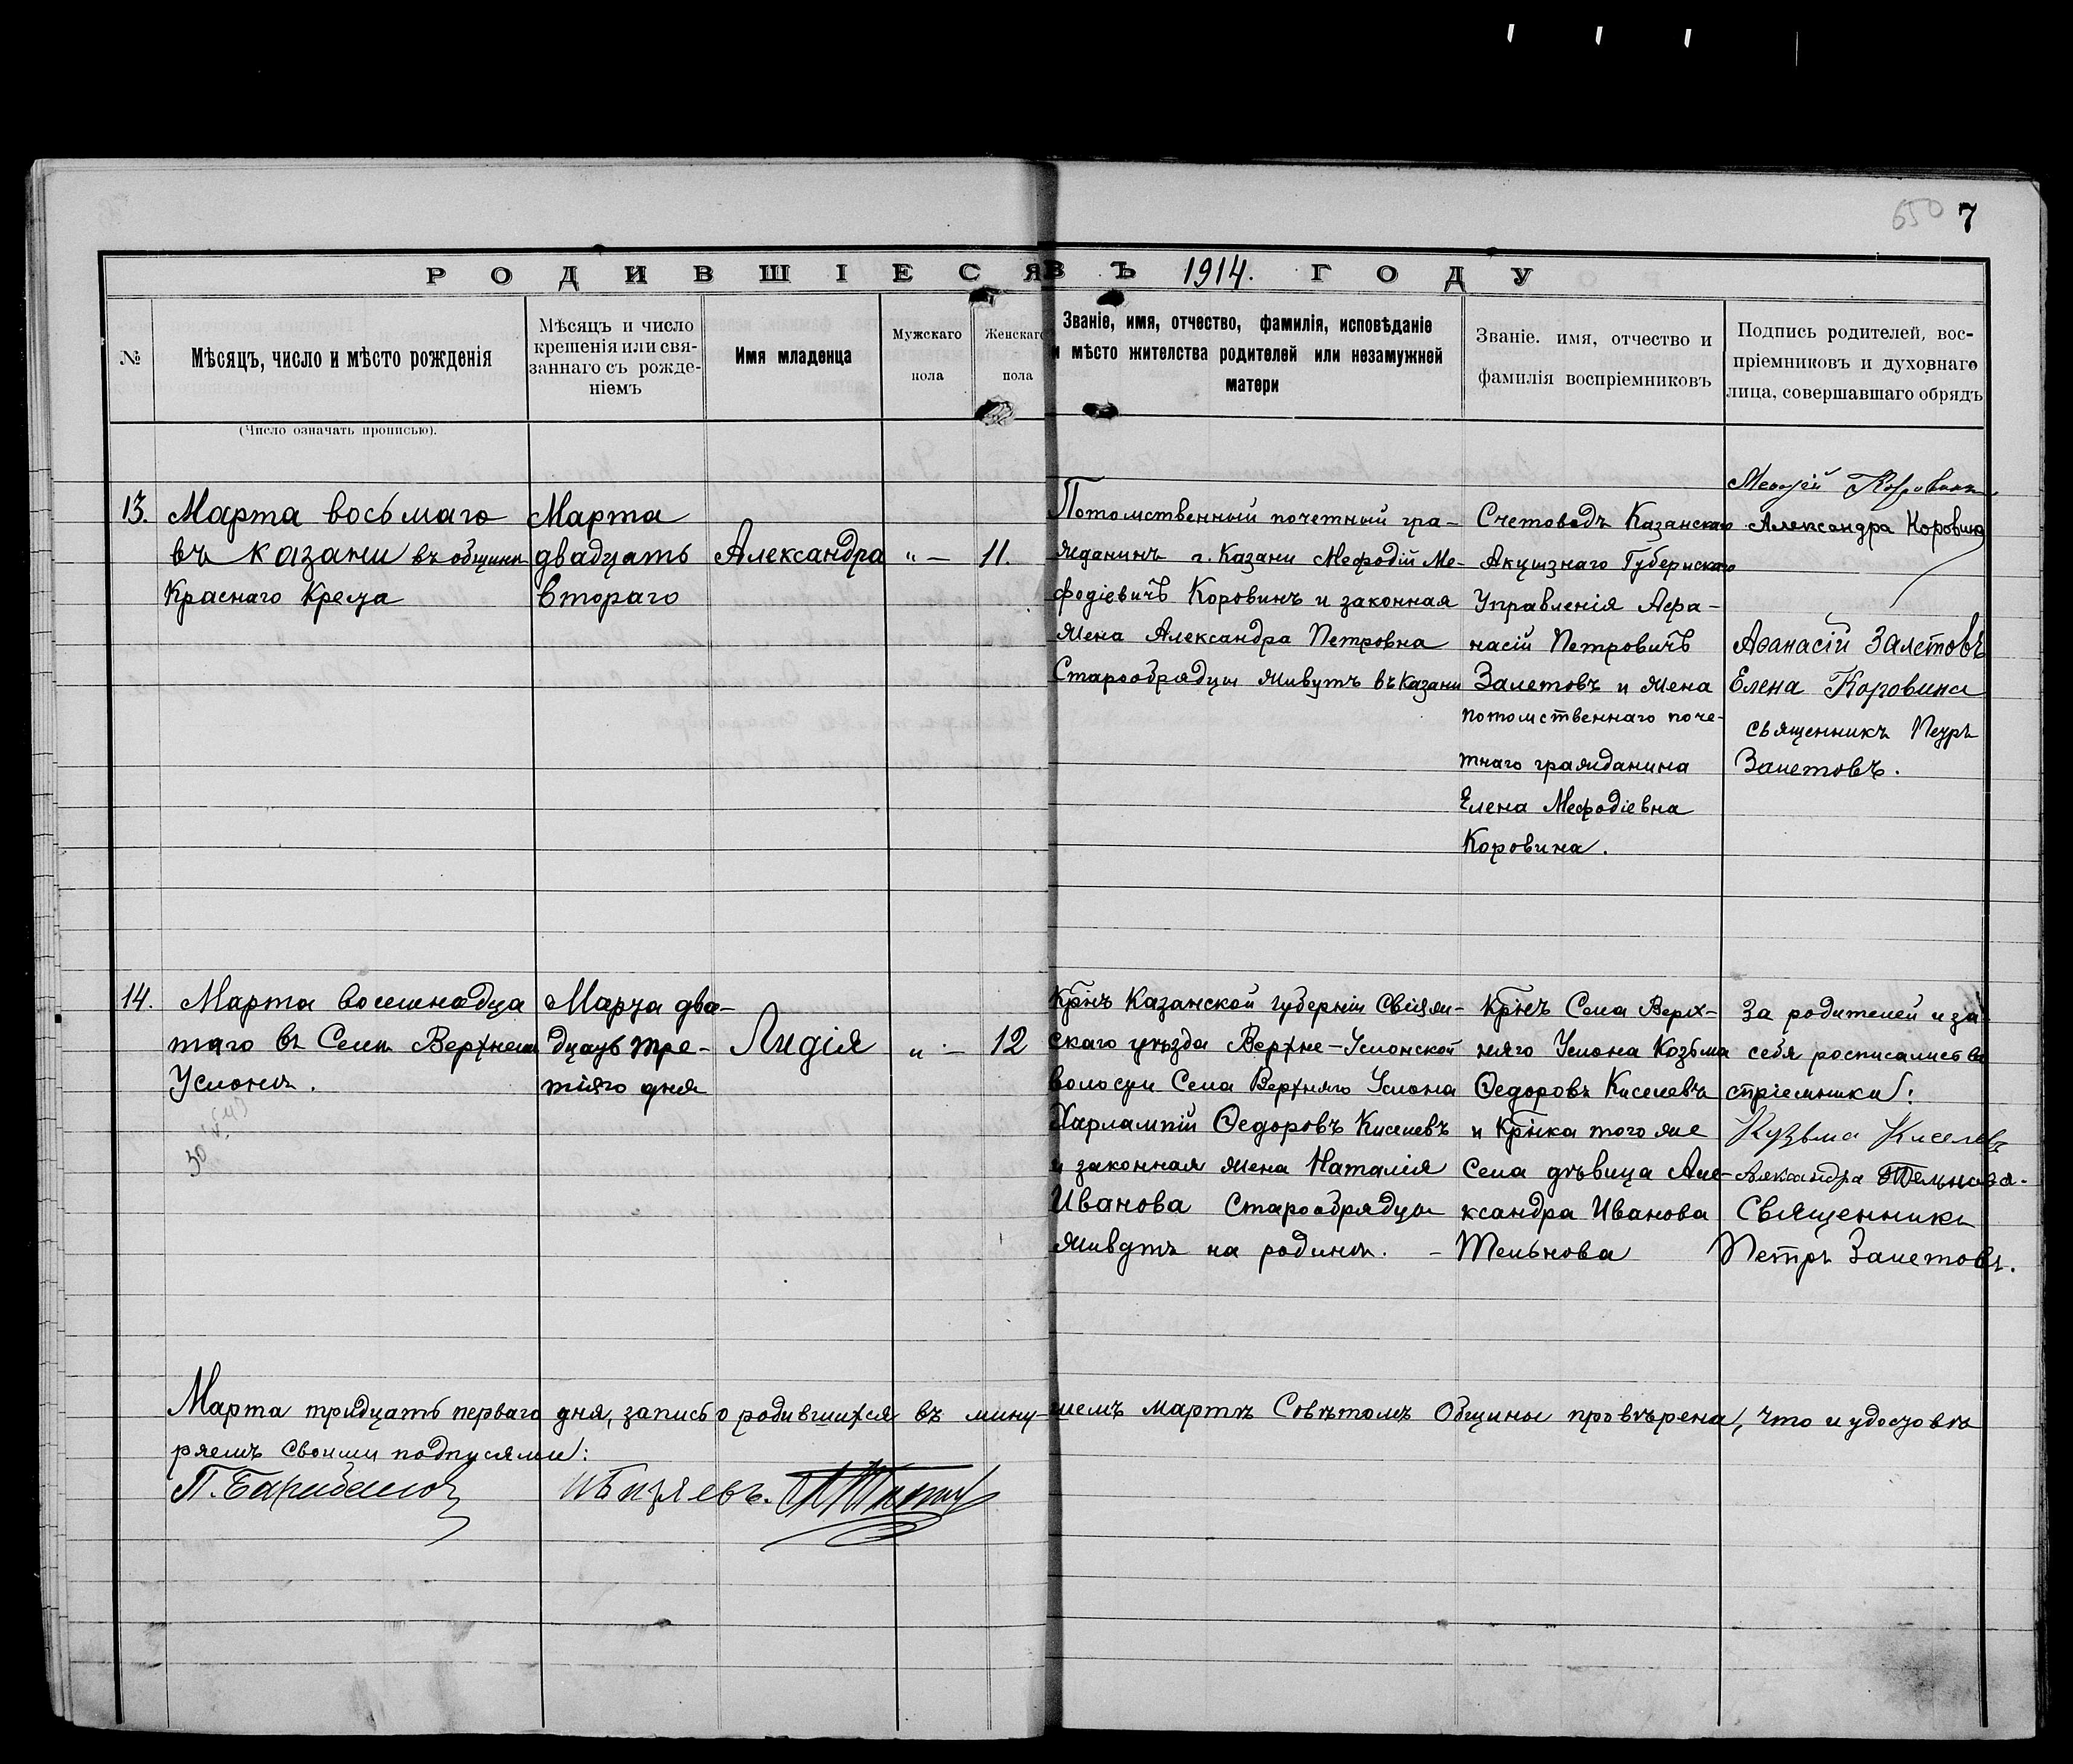 650 7
РОДИВШІЕСЯ ВЪ 1914. ГОДУ
№
Мѣсяцъ, число и мѣсто рожденія
(Число означать прописью).
Мѣсяцъ и число
крешенія или свя-
заннаго съ рожде-
ніемъ
Имя младенца
Мужскаго
пола
Женскаго
пола
Званіе, имя, отчество, фамилія, исповѣданіе
и мѣсто жителства родителей или незамужней
матери
Званіе. имя, отчество и
фамилія воспріемниковъ
Подпись родителей, вос-
пріемниковъ и духовнаго
лица, совершавшаго обрядъ
13.
Марта восьмаго
въ Казани въ общинѣ
Краснаго Креста
Марта
двадцать
втораго
Александра
" —
11.
Потомственный почетный гра-
жданинъ г. Казани Мефодій Ме-
фодіевичъ Коровинъ и законная
жена Александра Петровна
Старообрядцы живутъ въ Казани
Счетоводъ Казанскаго
Акцизнаго Губернскаго
Управленія Афа-
насій Петровичъ
Залетовъ и жена
потомственнаго поче-
тнаго гражданина
Елена Мефодіевна
Коровина.
Мефодій Коровинъ.
Александра Коровина
Аѳанасій Залетовъ
Елена Коровина
священникъ Петръ
Залетовъ.
14.
Марта восемнадца
таго въ Селѣ Верхнемъ
Услонѣ.
Марта два-
дцать тре-
тіяго дня
Лидія
" —
12
Крн҃ъ Казанской губерніи Свіяж-
скаго уѣзда Верхне-Услонской
волости Села Верхняго Услона
Харлампій Ѳедоровъ Киселевъ
и законная жена Наталія
Иванова Старообрядцы
живутъ на родинѣ. —
Крн҃ъ Села Верх-
няго Услона Козьма
Ѳедоровъ Киселевъ
и Крн҃ка того же
Села дѣвица Але-
ксандра Иванова
Тельнова
За родителей и за
себя росписались во
спріемники:
Кузьма Киселевъ
Александра Тельнова.
Священникъ
Петръ Залетовъ.
Марта тридцать перваго дня, запись о родившихся въ мину-шемъ мартѣ Совѣтомъ Общины провѣрена, что и удостовѣ
ряемъ своими подписями: